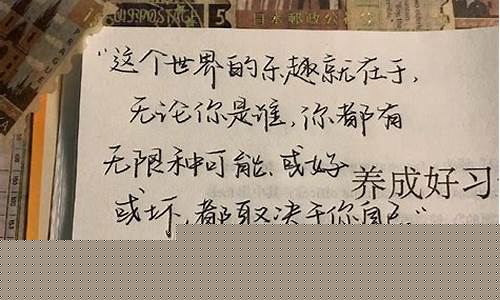 POSTAGE 5
日本郵政公社
“这个世界的乐趣就在于,
无论你是谁,你都有
无限种可能、或好
养成好习
或坏,都取决于你自己.”